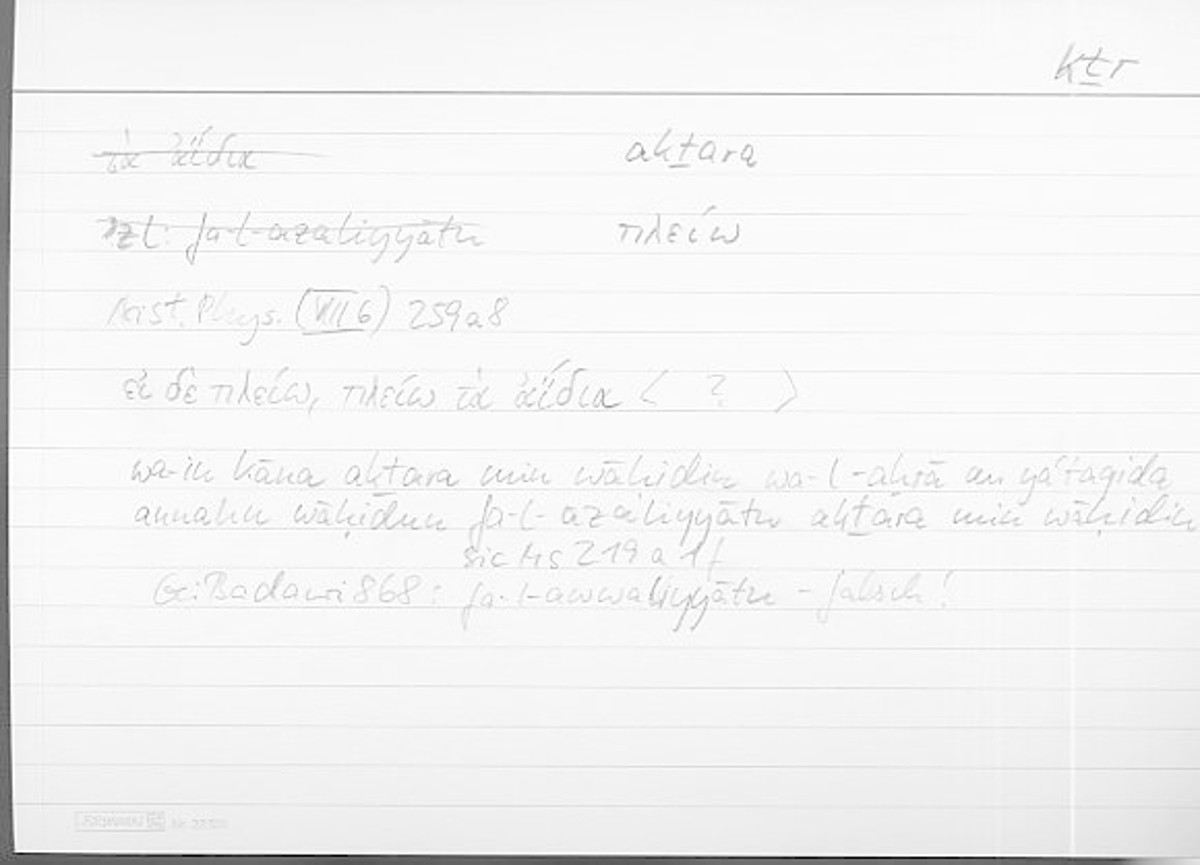 kṯr
τὰ ἀΐδια
akṯara
ʾzl: fa-l-azaliyyātu
πλείω
Arist. Phys. (VIII 6) 259a8
εἰ δὲ πλείω, πλείω τὰ ἀΐδια < ? >
wa-in kāna akṯara min wāḥidin wa-l-aḥrā an yaʿtaqida
annahu wāḥidun fa-l-azaliyyātu akṯara min wāḥidin
sic Ms 219 a 1f
Badawi 868: fa-l-awwaliyyātu - falsch!